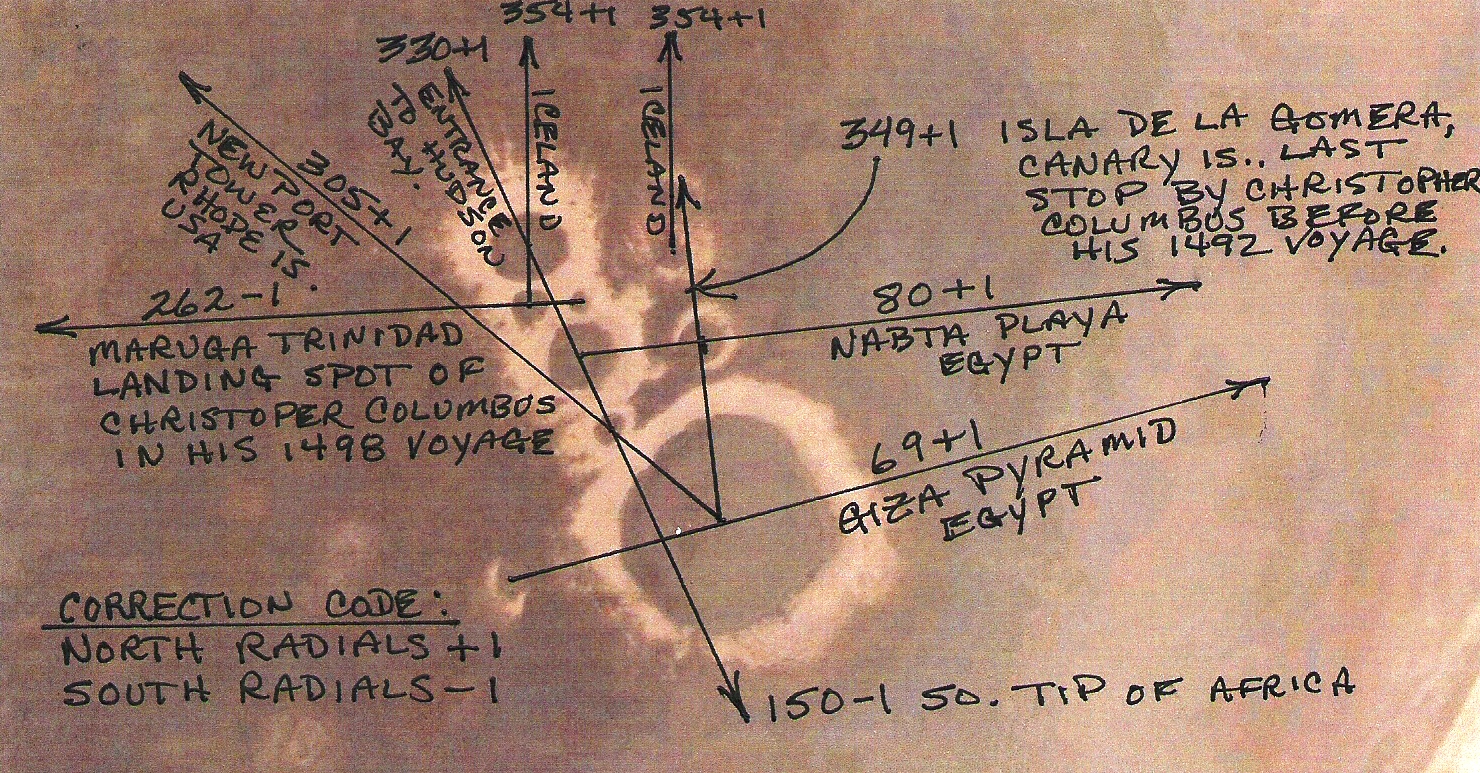 354+1
354+1
330+1
ICELAND
ICELAND
ENTRANCE
TO HUDSON
BAY.
305+1
NEWPORT
TOWER
RHODE IS.
USA
349+1 ISLA DE LA GOMERA,
CANARY IS.. LAST
STOP BY CHRISTOPHER
COLUMBUS BEFORE
HIS 1492 VOYAGE.
262-1
MARUGA TRINIDAD
LANDING SPOT OF
CHRISTOPER COLUMBUS
IN HIS 1498 VOYAGE
80+1
NABTA PLAYA
EGYPT
69+1
GIZA PYRAMID
EGYPT
CORRECTION CODE:
NORTH RADIALS +1
SOUTH RADIALS -1
150-1 SO. TIP OF AFRICA